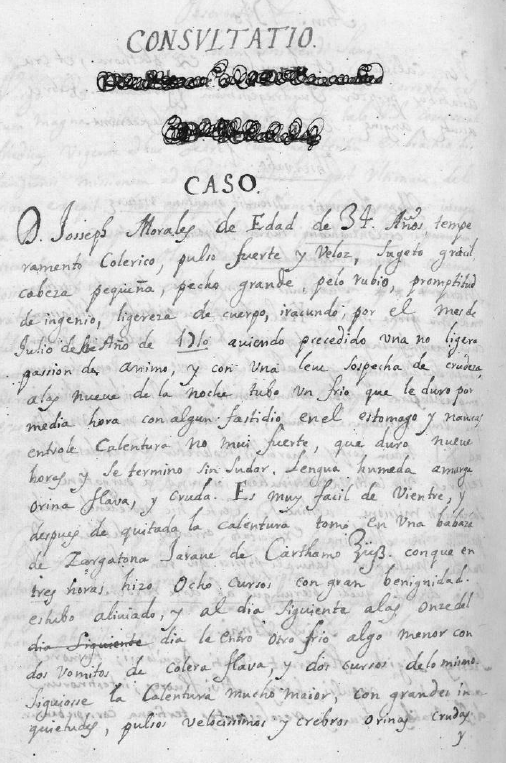 CONSVLTATIO.
CASO.
D. Josseph Morales de Edad de 34. Años, tempe
ramento Colerico, pulso fuerte y Veloz, sugeto gracil
cabeza pequeña, pecho grande, pelo rubio, promptitud
de ingenio, ligereza de cuerpo, iracundo; por el mes de
Julio de Año de 1710 auiendo precedido vna no ligera
passion de animo, y con vna leue sospecha de crudeza,
a las nueve de la noche tubo vn frio que le duro por
media hora con algun fastidio en el estomago y nauseas
entrole Calentura no mui fuerte, que duro nueve
horas y se termino sin sudar. Lengua humeda amarga
orina flava, y cruda. Es muy facil de Vientre, y
despues de quitada la calentura tomó en vna babaza
de Zargatona Jaraue de Carthamo conque en
tres horas hizo Ocho cursos con gran benignidad.
estubo aliviado, y al dia siguiente a las Onze del
dia siguiente dia le entro otro frio algo menor con
dos Vomitos de colera flava y dos cursos de lo mismo.
siguiosse la Calentura mucho maior, con grandes in
quietudes, pulsos velocissimos y crebros orinas crudas
y